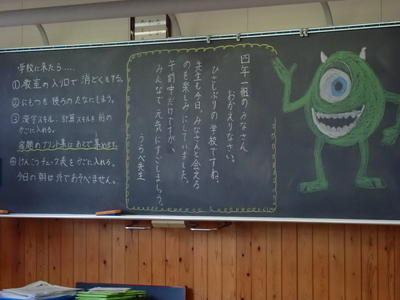 学校に来たら……
① 教室の入り口で消どくをする。
② にもつを後ろのたなにしまう。
③ 漢字スキル、計算スキルを前の
かごに入れる。
宿題のプリント集はあとで集めます。
④ けんこうチェック表をかごに入れる。
今日の朝は外であそべません。
四年一組のみなさん
おかえりなさい。
ひさしぶりの学校ですね。
先生も今日、みなさんと会える
のを楽しみにしていました。
午前中だけですが、
みんなで元気にすごしましょう。
うらべ先生